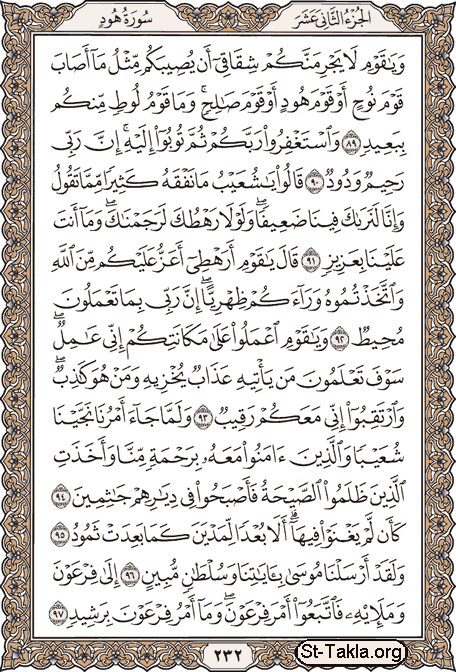 الجزء الثاني عشر
سورة هود
وَيَٰقَوْمِ لَا يَجْرِمَنَّكُمْ شِقَاقِىٓ أَن يُصِيبَكُم مِّثْلُ مَآ أَصَابَ
قَوْمَ نُوحٍ أَوْ قَوْمَ هُودٍ أَوْ قَوْمَ صَٰلِحٍ ۚ وَمَا قَوْمُ لُوطٍ مِّنكُم
بِبَعِيدٍ ٨٩ وَٱسْتَغْفِرُوا۟ رَبَّكُمْ ثُمَّ تُوبُوٓا۟ إِلَيْهِ ۚ إِنَّ رَبِّى
رَحِيمٌ وَدُودٌ ٩٠ قَالُوا۟ يَٰشُعَيْبُ مَا نَفْقَهُ كَثِيرًا مِّمَّا تَقُولُ
وَإِنَّا لَنَرَىٰكَ فِينَا ضَعِيفًا ۖ وَلَوْلَا رَهْطُكَ لَرَجَمْنَٰكَ ۖ وَمَآ أَنتَ
عَلَيْنَا بِعَزِيزٍ ٩١ قَالَ يَٰقَوْمِ أَرَهْطِىٓ أَعَزُّ عَلَيْكُم مِّنَ ٱللَّهِ
وَٱتَّخَذْتُمُوهُ وَرَآءَكُمْ ظِهْرِيًّا ۖ إِنَّ رَبِّى بِمَا تَعْمَلُونَ
مُحِيطٌ ٩٢ وَيَٰقَوْمِ ٱعْمَلُوا۟ عَلَىٰ مَكَانَتِكُمْ إِنِّى عَٰمِلٌ ۖ
سَوْفَ تَعْلَمُونَ مَن يَأْتِيهِ عَذَابٌ يُخْزِيهِ وَمَنْ هُوَ كَٰذِبٌ ۖ
وَٱرْتَقِبُوٓا۟ إِنِّى مَعَكُمْ رَقِيبٌ ٩٣ وَلَمَّا جَآءَ أَمْرُنَا نَجَّيْنَا
شُعَيْبًا وَٱلَّذِينَ ءَامَنُوا۟ مَعَهُۥ بِرَحْمَةٍ مِّنَّا وَأَخَذَتِ
ٱلَّذِينَ ظَلَمُوا۟ ٱلصَّيْحَةُ فَأَصْبَحُوا۟ فِى دِيَٰرِهِمْ جَٰثِمِينَ ٩٤
كَأَن لَّمْ يَغْنَوْا۟ فِيهَآ ۗ أَلَا بُعْدًا لِّمَدْيَنَ كَمَا بَعِدَتْ ثَمُودُ ٩٥
وَلَقَدْ أَرْسَلْنَا مُوسَىٰ بِـَٔايَٰتِنَا وَسُلْطَٰنٍ مُّبِينٍ ٩٦ إِلَىٰ فِرْعَوْنَ
وَمَلَإِي۟هِۦ فَٱتَّبَعُوٓا۟ أَمْرَ فِرْعَوْنَ ۖ وَمَآ أَمْرُ فِرْعَوْنَ بِرَشِيدٍ ٩٧
٢٣٢
St-Takla.org